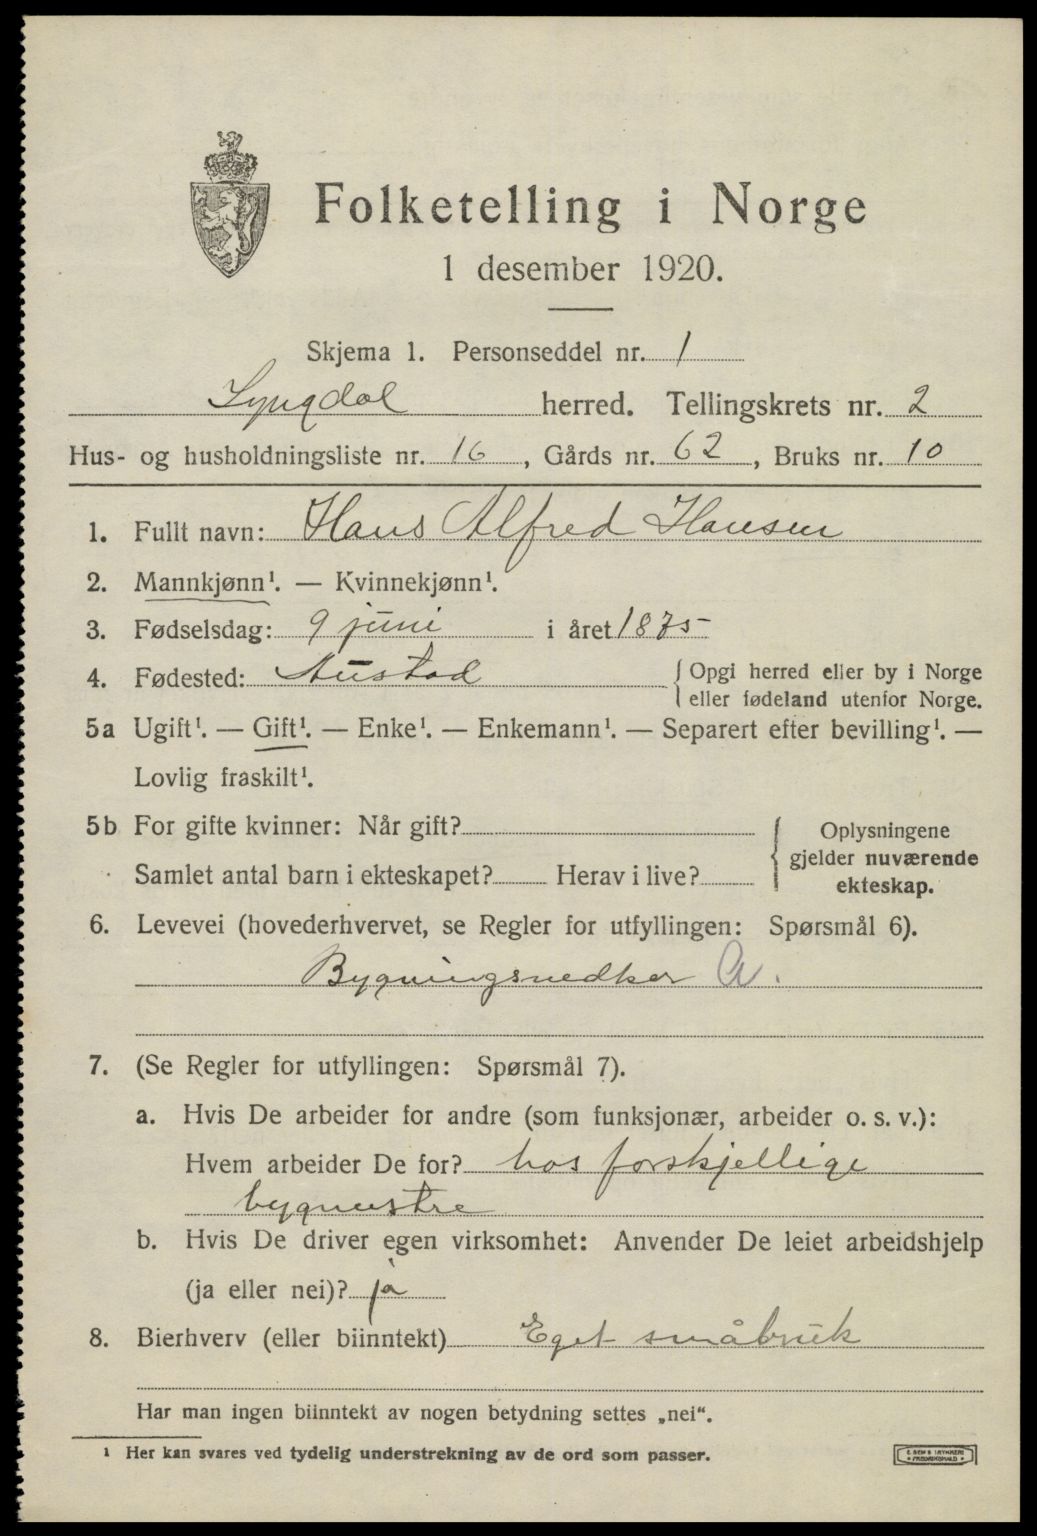 Folketelling i Norge
1 desember 1920.
Skjema 1. Personseddel nr. 1
Lyngdal herred. Tellingskrets nr. 2
Hus- og husholdningsliste nr. 16, Gårds nr. 62, Bruks nr. 10
1. Fullt navn: Hans Alfred Hansen
2. Mannkjønn¹. — Kvinnekjønn¹.
3. Fødselsdag: 9 juni i året 1875
4. Fødested: Austad { Opgi herred eller by i Norge
eller fødeland utenfor Norge.
5a Ugift¹. — Gift¹. — Enke¹. — Enkemann¹. — Separert efter bevilling¹. —
Lovlig fraskilt¹.
5b For gifte kvinner: Når gift?
Samlet antal barn i ekteskapet? Herav i live?
Oplysningene
gjelder nuværende
ekteskap.
6. Levevei (hovederhvervet, se Regler for utfyllingen: Spørsmål 6).
Bygningsnedker A.
7. (Se Regler for utfyllingen: Spørsmål 7).
a. Hvis De arbeider for andre (som funksjonær, arbeider o. s. v.):
Hvem arbeider De for? hos forskjellige
bygmestre
b. Hvis De driver egen virksomhet: Anvender De leiet arbeidshjelp
(ja eller nei)? ja
8. Bierhverv (eller biinntekt) Eget småbruk
Har man ingen biinntekt av nogen betydning settes „nei“.
¹ Her kan svares ved tydelig understrekning av de ord som passer.